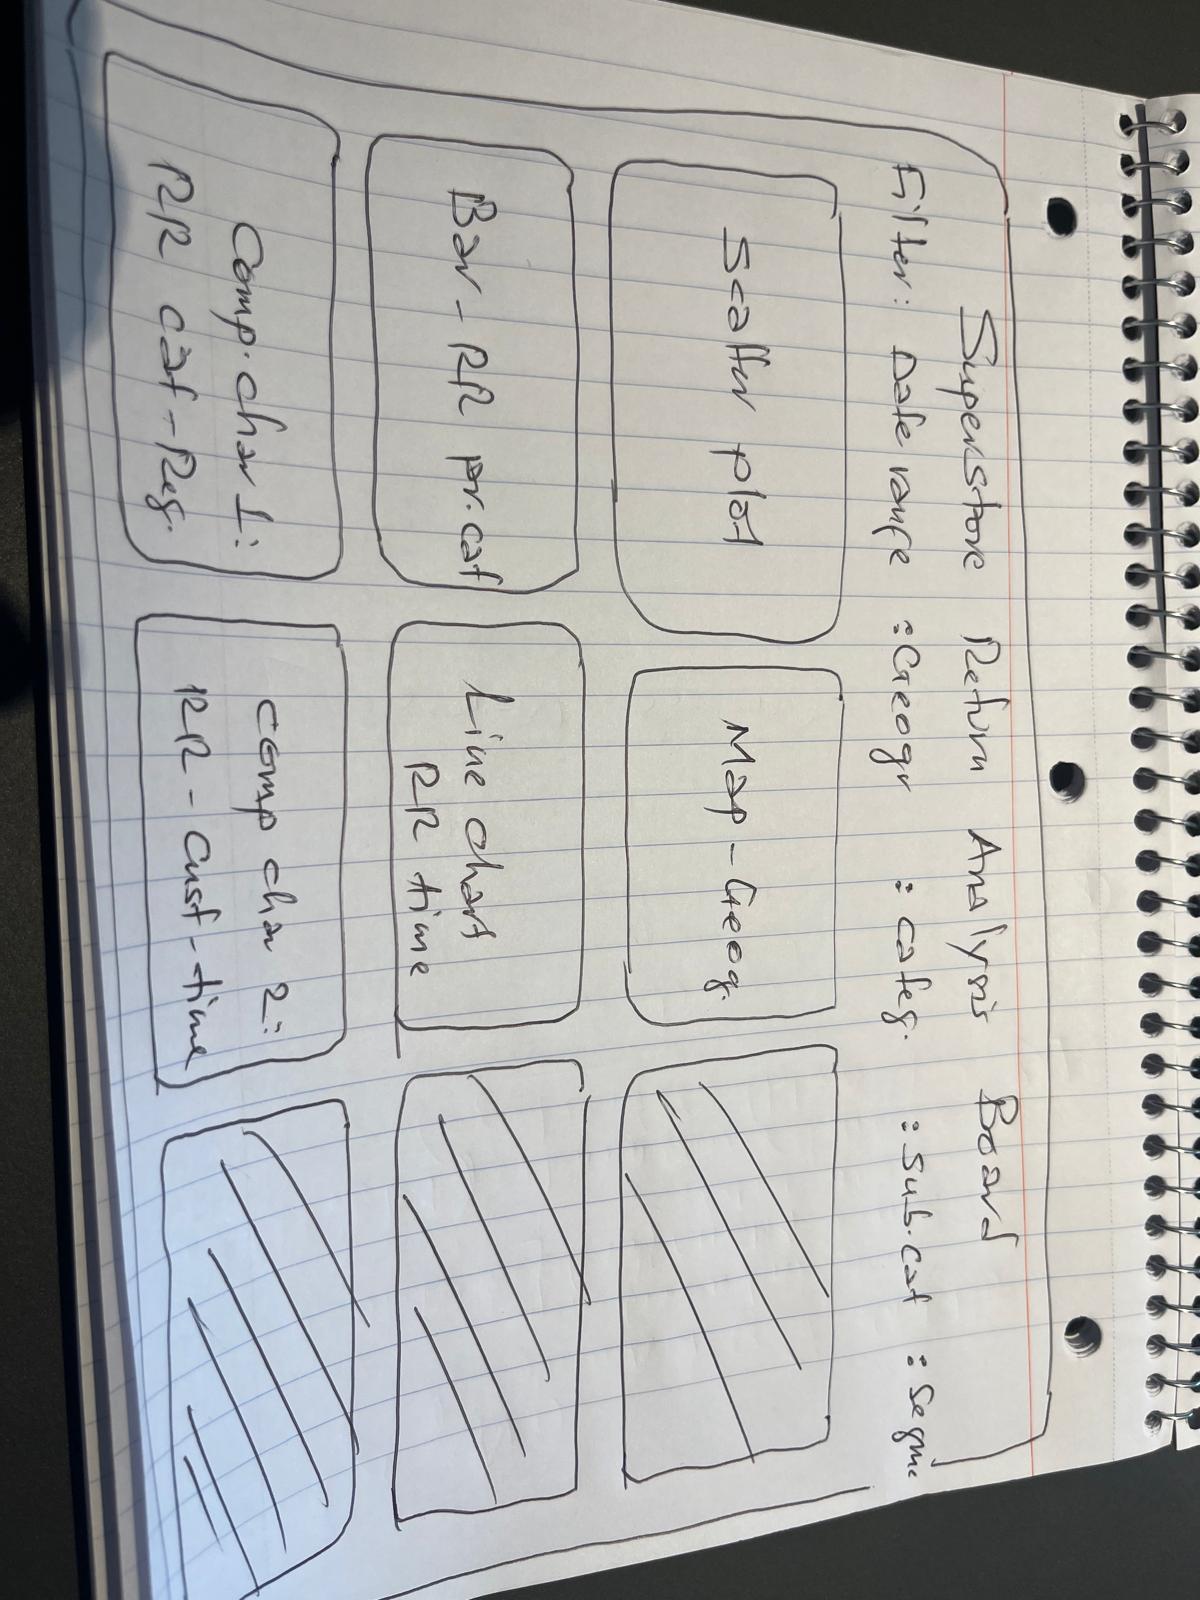 Superstore Return Analysis Board
Filter: Date range : Geogr : Categ. : Sub.cat : Segme
Scatter plot
Map - Geog.
Bar - RR pr. cat
Line chart
RR time
Comp. char 1:
RR cat - Reg.
Comp char 2:
RR - Cust - time